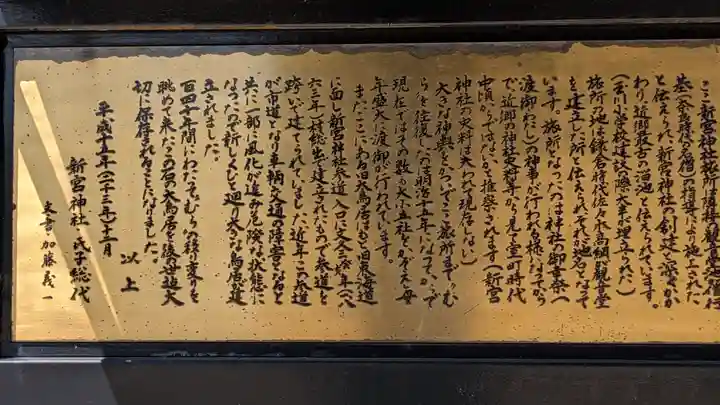 ここ新宮神社旅所
基(奈良時代の名僧)の指導により池として
と伝えられ、新宮神社の創建と深くかか
わり、近郷最古の溜池と伝えられています。
(玉川小学校建設の際大半は埋立られた)
旅所の地は鎌倉時代佐々木高綱観音堂
を建立した所と伝えられてこれが地名になって
います。旅所となったのは神社御幸祭(
渡御ねり)の神事が行われる様になってから
で、近郷の神社史料等から見て室町時代
中頃からではないかと推察されます(新宮
神社の史料は失われて現存しない)
大きな神輿をかついでここ旅所までねむ
らを往復したのは明治十五年になってからで
現在ではその数も大小五社をかぞえ毎
年盛大に渡御が行われています。
またここにあった旧大鳥居は旧東海道
に面し新宮神社参道入口に文久三癸亥年(一八
六三年)枝総出で建立されたもので参道を
跨いで建てられていましたが近年この参道
が市道となり車輌交通の障害となると
共に一部に風化が進み危険な状態に
なったので新しく大きな鳥居が建
立されました。
百四十年間にわたってむらの移り変りを
眺めて来たこの石の大鳥居を後世迄大
切に保存されることになりました。
以上
平成十三年(二〇〇一年)十二月
新宮神社・氏子総代
文書 加藤義一